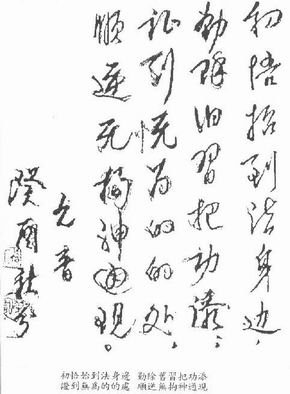 初悟恰到法身边,
勤除旧习把功添;
证到 为的的处,
顺逆无拘神通现。
元音
癸酉秋
初悟恰到法身邊 勤除舊習把功添
證到無為的的處 順逆無拘神通現